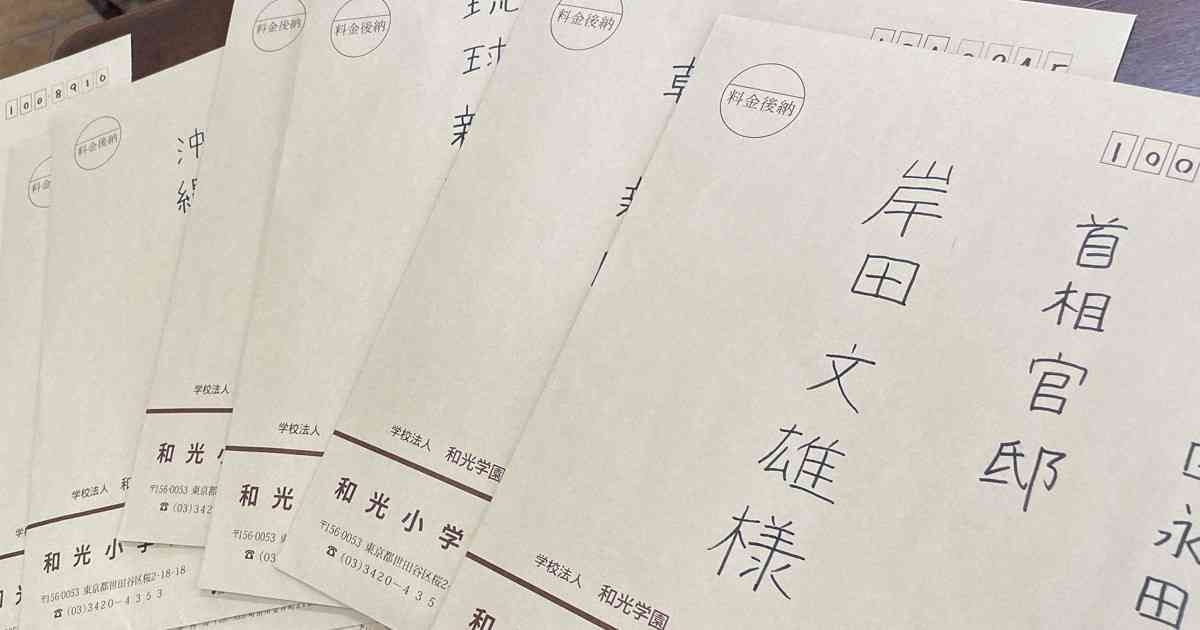 1008910
料金後納
沖
和光小
〒156-0053 東京都世田谷区桜2-18-18
☎(03)3420-4353
学校法人
料金後納
学校法人
和光
〒156-0053 東京都
☎(03)342
料金後納
琉
球
新
学校法人
和光
〒156-0053
☎(03
料金後納
学校法人 和光学園
和光小学
〒156-0053 東京都世田谷区桜2-
☎(03)3420-435
料金後納
100
永田
首相官邸
岸田文雄様
学校法人 和光学園
和